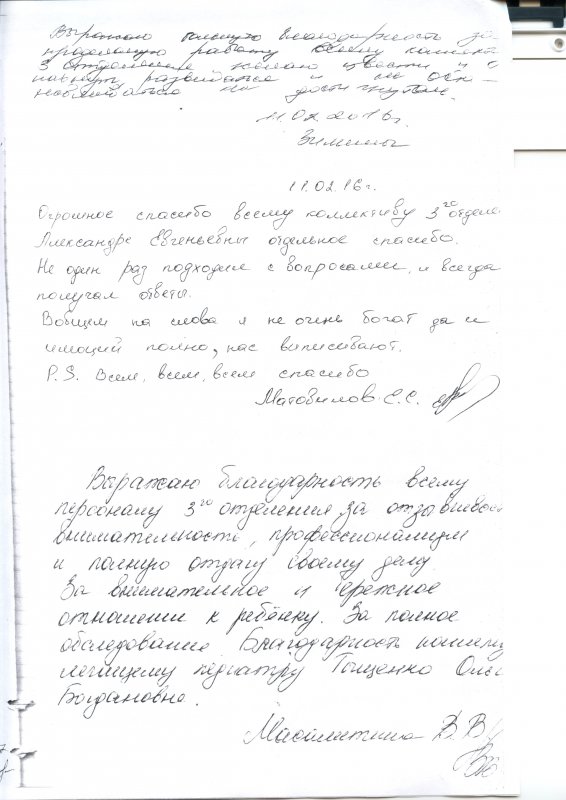 Выражаю большую благодарность за
проделанную работу всему коллект
3 отделения желаю цвести и
развиваться и не
на достигнутом.
11.02.2016г.
Зимины
11.02.16г.
Огромное спасибо всему коллективу 3го отделе
Александре Евгеньевны отдельное спасибо.
Не один раз подходил с вопросами, и всегда
получал ответы.
Вобщем на слова я не очень богат да и
имоций полно, нас выписывают.
P.S. Всем, всем, всем спасибо
Матовилов Е.С.
Выражаю благодарность всему
персоналу 3го отделения за отзывчивос
внимательность, профессионализм
и полную отдачу своему делу
За внимательное и бережное
отношении к ребёнку. За полное
обследование. Благодарность нашему
лечащему педиатру Тощенко Ольг
Богдановне.
В.В.